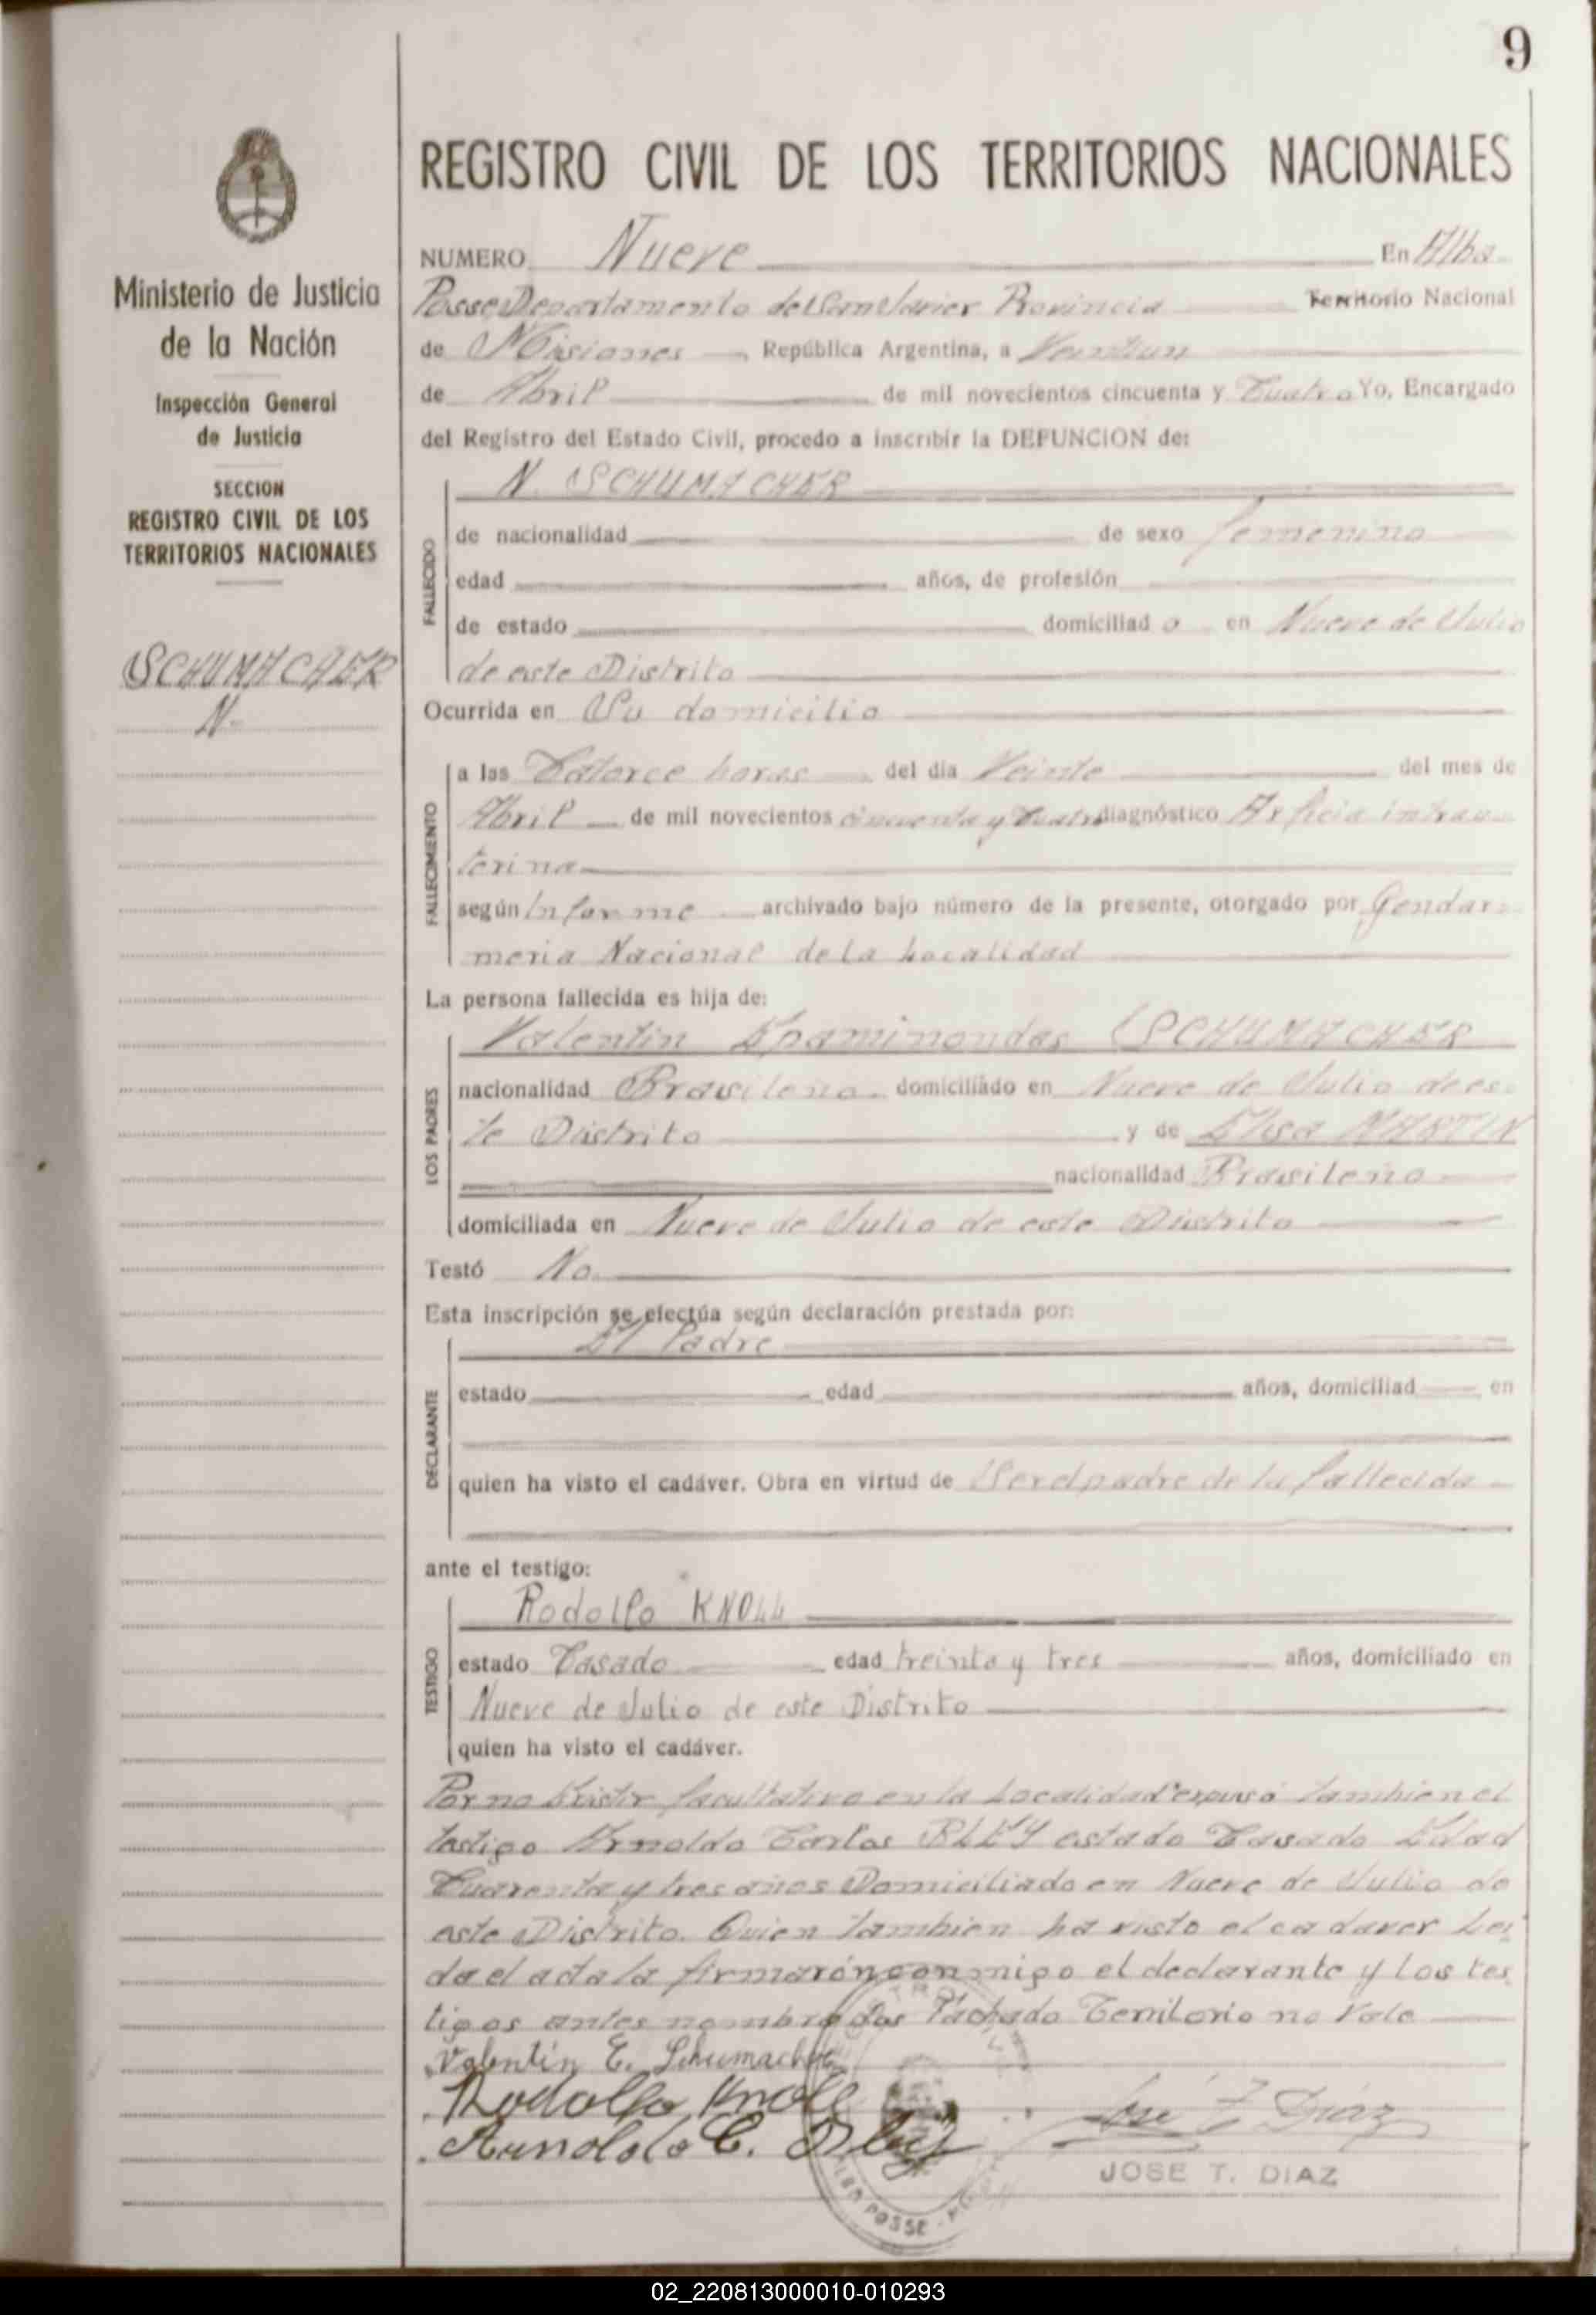 9
REGISTRO CIVIL DE LOS TERRITORIOS NACIONALES
Ministerio de Justicia
de la Nación
Inspección General
de Justicia
SECCION
REGISTRO CIVIL DE LOS
TERRITORIOS NACIONALES
SCHUMACHER
N.
NUMERO Nueve En Alba
Posse Departamento de San Javier Provincia Territorio Nacional
de Misiones República Argentina, a Veintiun
de Abril de mil novecientos cincuenta y Cuatro Yo, Encargado
del Registro del Estado Civil, procedo a inscribir la DEFUNCION de:
N. SCHUMACHER
FALLECIDO
de nacionalidad de sexo femenino
edad años, de profesión
de estado domiciliad o en Nueve de Julio
de este Distrito
Ocurrida en Su domicilio
FALLECIMIENTO
a las Catorce horas del día Veinte del mes de
Abril de mil novecientos cincuenta y Cuatro diagnóstico intrau
terina
según Informe archivado bajo número de la presente, otorgado por Gendar
meria Nacional de la Localidad
La persona fallecida es hija de:
LOS PADRES
Valentin Epaminondas SCHUMACHER
nacionalidad Brasileña domiciliado en Nueve de Julio de es
te Distrito y de Elsa MARTIN
nacionalidad Brasileña
domiciliada en Nueve de Julio de este Distrito
Testó No
Esta inscripción se efectúa según declaración prestada por:
El Padre
DECLARANTE
estado edad años, domiciliad en
quien ha visto el cadáver. Obra en virtud de Ser el padre de la fallecida
ante el testigo:
Rodolfo KNOLL
TESTIGO
estado Casado edad treinta y tres años, domiciliado en
Nueve de Julio de este Distrito
quien ha visto el cadáver.
Por no Existir facultativo en la Localidad expuso tambien el
testigo Arnoldo Carlos BLEY estado Casado Edad
Cuarenta y tres años Domiciliado en Nueve de Julio de
este Distrito. Quien tambien ha visto el cadaver Lei
da el acta la firmarón conmigo el declarante y los tes
tigos antes nombrados Tachado Territorio no Vale
Valentin E. Schumacher
Rodolfo Knoll
Arnoldo C. Bley
José T Diaz
JOSE T. DIAZ
POSSE
02_220813000010-010293